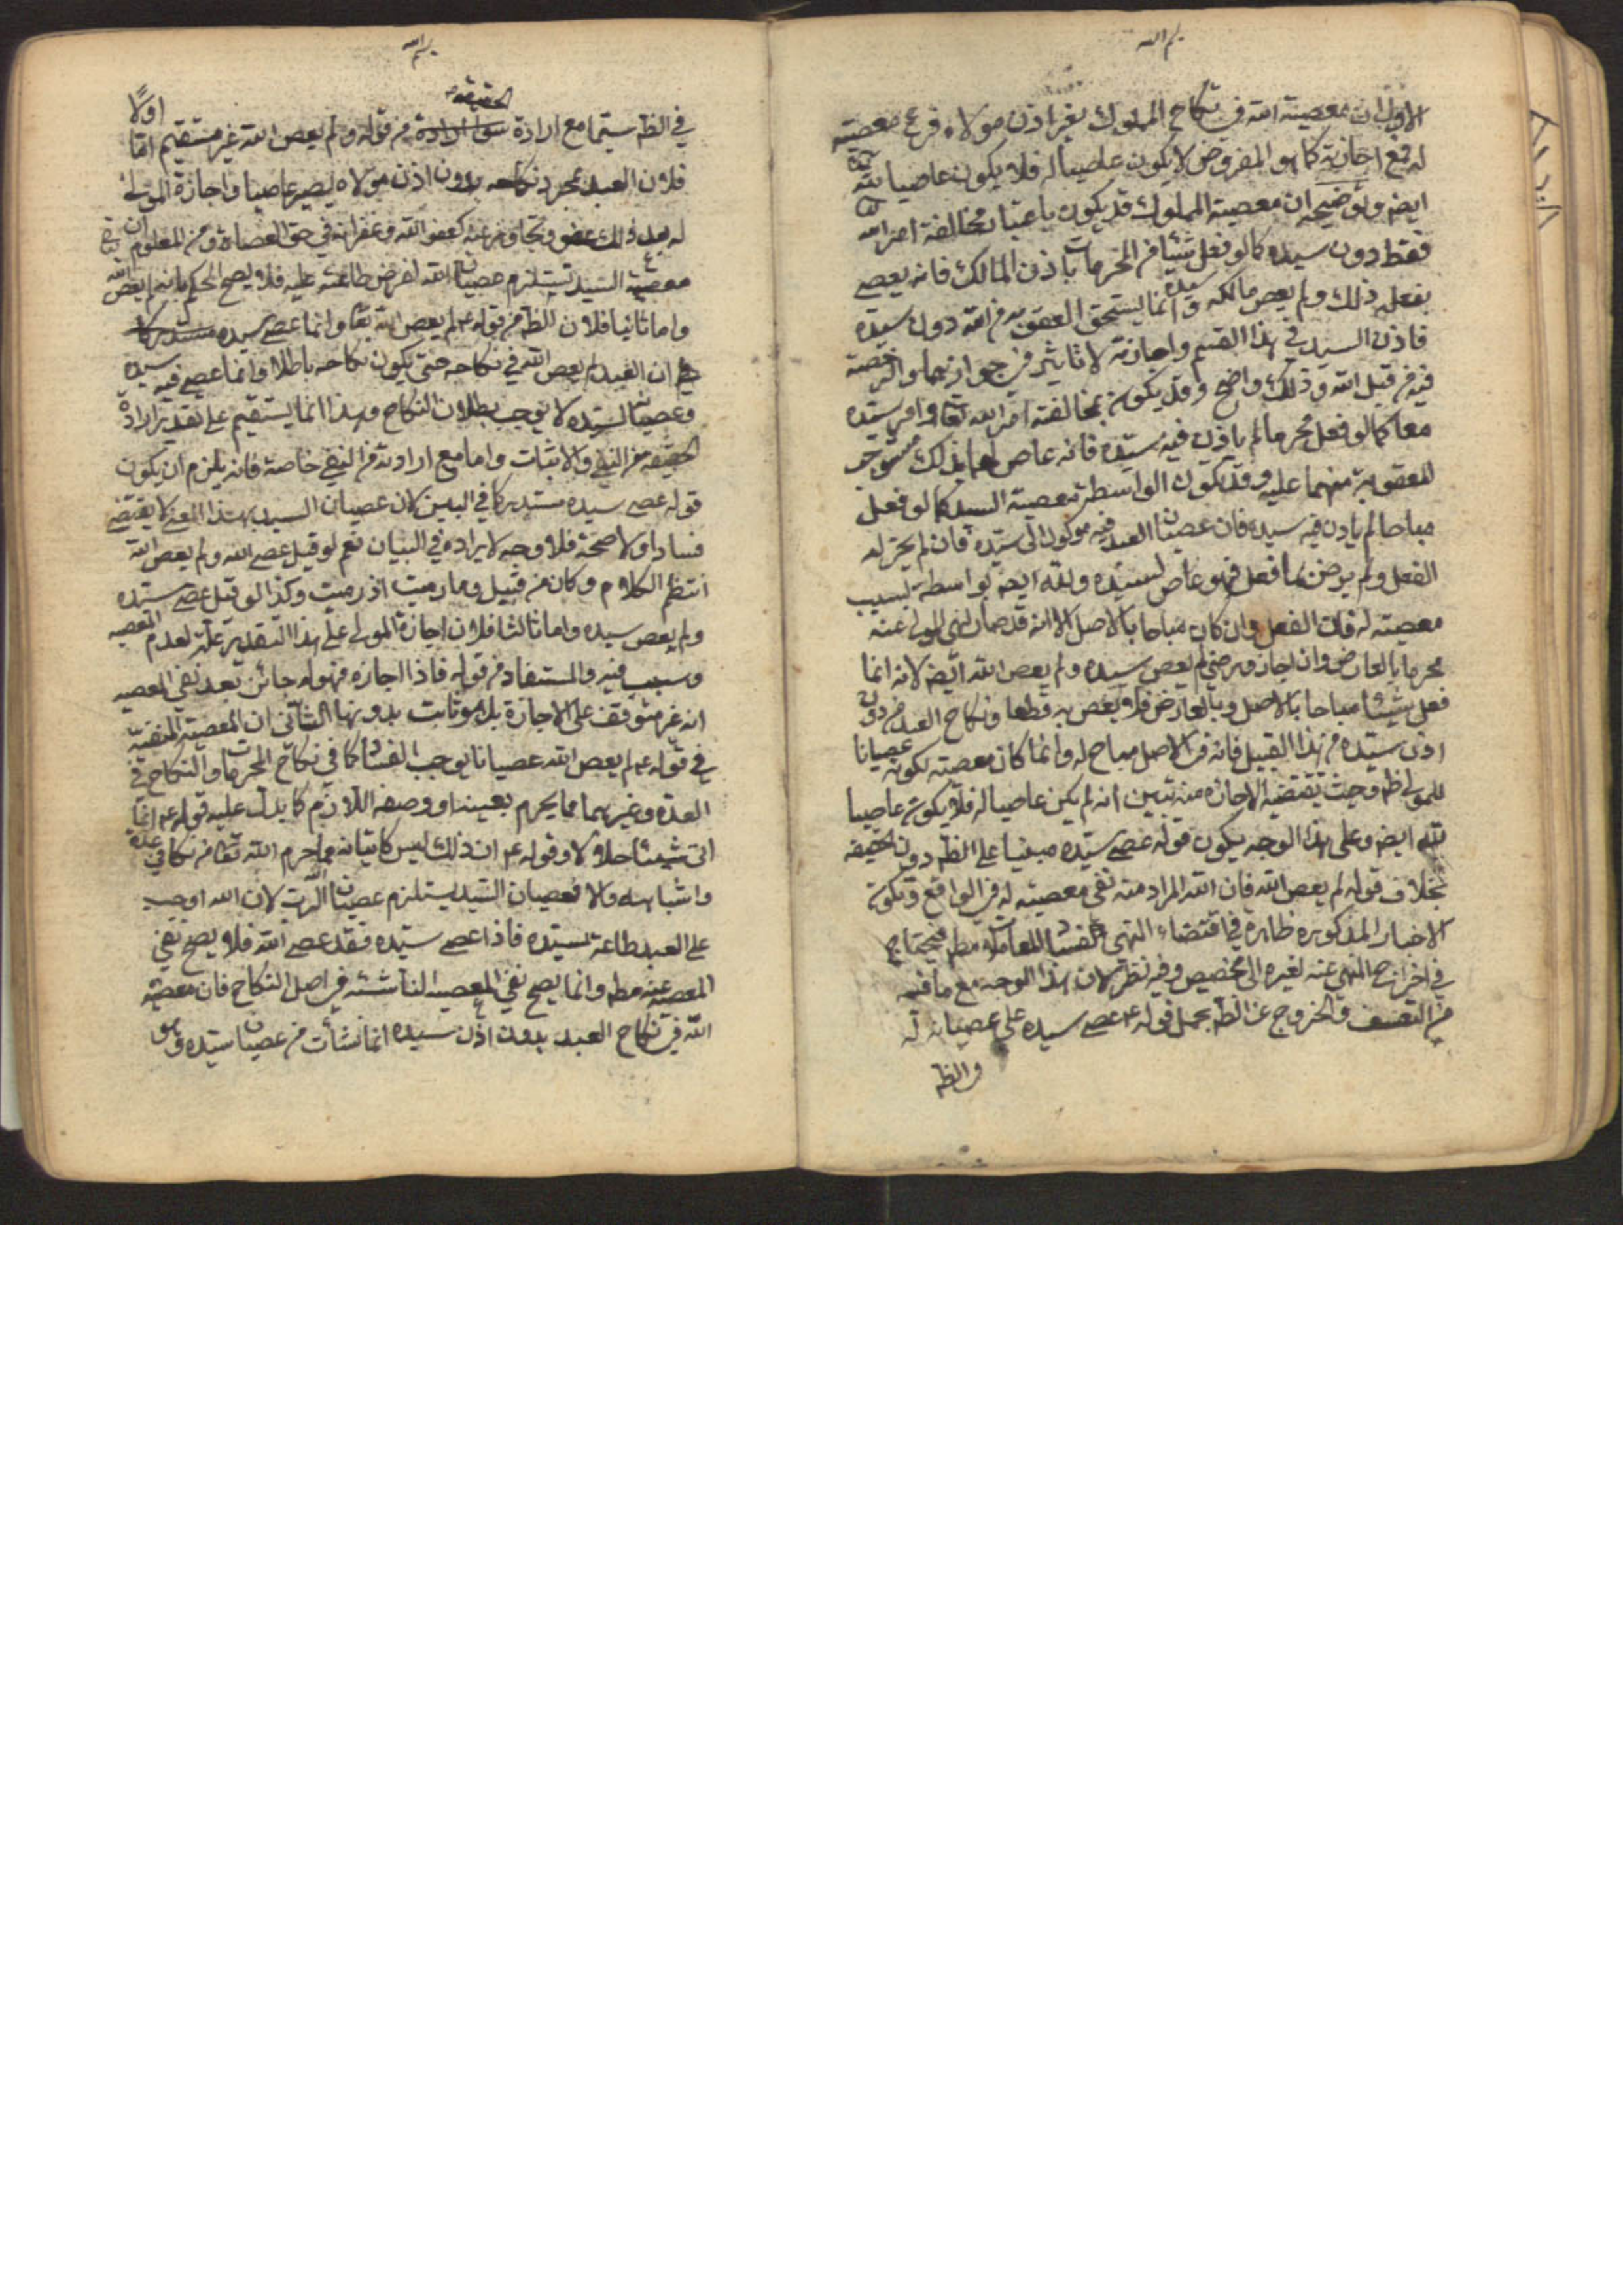 بسم الله
الاول ان معصيته الله في نكاح المملوك بغير اذن مولاه فرع معصيته
له فمع اجازته كما هو المفروض لا يكون عاصيا له فلا يكون عاصيا لله تعا
ايضه وتوضيحه ان معصية المملوك قد يكون باعتبار مخالفة امر الله تعا
فقط دون سيده كما لو فعل شيئا من المحرمات باذن المالك فانه يعصى
بفعله ذلك ولم يعص مالكه سيده وانما يستحق العقوبة من الله دون سيده
فاذن السيد في هذا القسم واجازته لا تاثير في جوازهما والرخصة
فيه من قبل الله وذلك واضح وقد يكون بمخالفته امر الله تعا وامر سيده
معا كما لو فعل محرما لم ياذن فيه سيده فانه عاص لهما بذلك مستوجب
للعقوبة منهما عليه وقد يكون الواسطة معصية السيد كما لو فعل
مباحا لم ياذن فيه سيده فان عصيان العبد فيه موكول الى سيده فان لم يجز له
الفعل ولم يرض بما فعل فهو عاص لسيده ولله ايضه بواسطة بسبب
معصيته له فان الفعل وان كان مباحا بالاصل الا انه قد صار لنهى المولى عنه
محرما بالعارض وان اجاز ورضى لم يعص سيده ولم يعص الله ايضه لانه انما
فعل شيئا مباحا بالاصل وبالعارض فلا يعص به قطعا ونكاح العبد من دون
اذن سيده من هذا القبيل فانه في الاصل مباح له وانما كان معصيته لكونه عصيانا
للمولى ظه وحيث تعقبه الاجازه منه تبين انه لم يكن عاصيا له فلا يكون عاصيا
لله ايضه وعلى هذا الوجه يكون قوله عصى سيده مبنيا على الظه دون الحقيقه
بخلاف قوله لم يعص الله فان المراد منه نفى معصيته له في الواقع وتكون
الاخبار المذكوره ظاهرة في اقتضاء النهى الفساد للمعاملة مطه فيحتاج
في اخراج المنهي عنه لغيره الى مخصص وفيه نظر لان هذا الوجه مع ما فيه
من التعسف والخروج عن الظه بحمل قوله ع عصى سيده على عصيانه له
في الظه
بسم الله
في الظه سيما مع ارادة الحقيقه من قوله ولم يعص الله غير مستقيم اما اولا
فلان العبد بمجرد نكاحه بدون اذن مولاه يصير عاصيا واجازة المولى
له بعد ذلك عفو وتجاوز عنه كعفو الله وغفرانه في حق العصاة ومن المعلوم ان
معصية السيد تستلزم عصيان الله لفرض طاعته عليه فلا يصح الحكم بانه لم يعص الله
واما ثانيا فلان الظه من قوله ع لم يعص الله تعا وانما عصى سيده
ان العبد لم يعص الله في نكاحه حتى يكون نكاحه باطلا وانما عصى فيه سيده
وعصيان السيد لا يوجب بطلان النكاح وهذا انما يستقيم على تقدير ارادة
الحقيقه من النفي والاثبات واما مع ارادته من النفي خاصة فانه يلزم ان يكون
قوله عصى سيده مستدركا في البين لان عصيان السيد بهذا المعنى لا يقتضي
فسادا ولا صحة فلا وجه لايراده في البيان نعم لو قيل عصى الله ولم يعص الله
انتظم الكلام وكان من قبيل وما رميت اذ رميت وكذا لو قيل عصى سيده
ولم يعص سيده واما ثالثا فلان اجازة المولى على هذا التقدير علة لعدم المعصيه
وسبب فيه والمستفاد من قوله فاذا اجازه فهو له جائز بعد نفي المعصيه
انه غير متوقف على الاجازة بل هو ثابت بدونها الثاني ان المعصية المنفية
في قوله ع لم يعص الله عصيانا يوجب الفساد كما في نكاح المحرمات والنكاح في
العدة وغيرهما مما يحرم بعينه او وصفه اللازم كما يدل عليه قوله ع انما
اتى شيئا حلالا وقوله ع ان ذلك ليس كاتيانه ما حرم الله تعا من نكاح في عدة
واشباهه والا فعصيان السيد يستلزم عصيان الرب لان الله اوجب
على العبد طاعة سيده فاذا عصى سيده فقد عصى الله فلا يصح نفي
المعصيه عنه مطه وانما يصح نفي المعصيه الناشئة في اصل النكاح فان معصية
الله في نكاح العبد بدون اذن سيده انما نشأت من عصيان سيده وهو